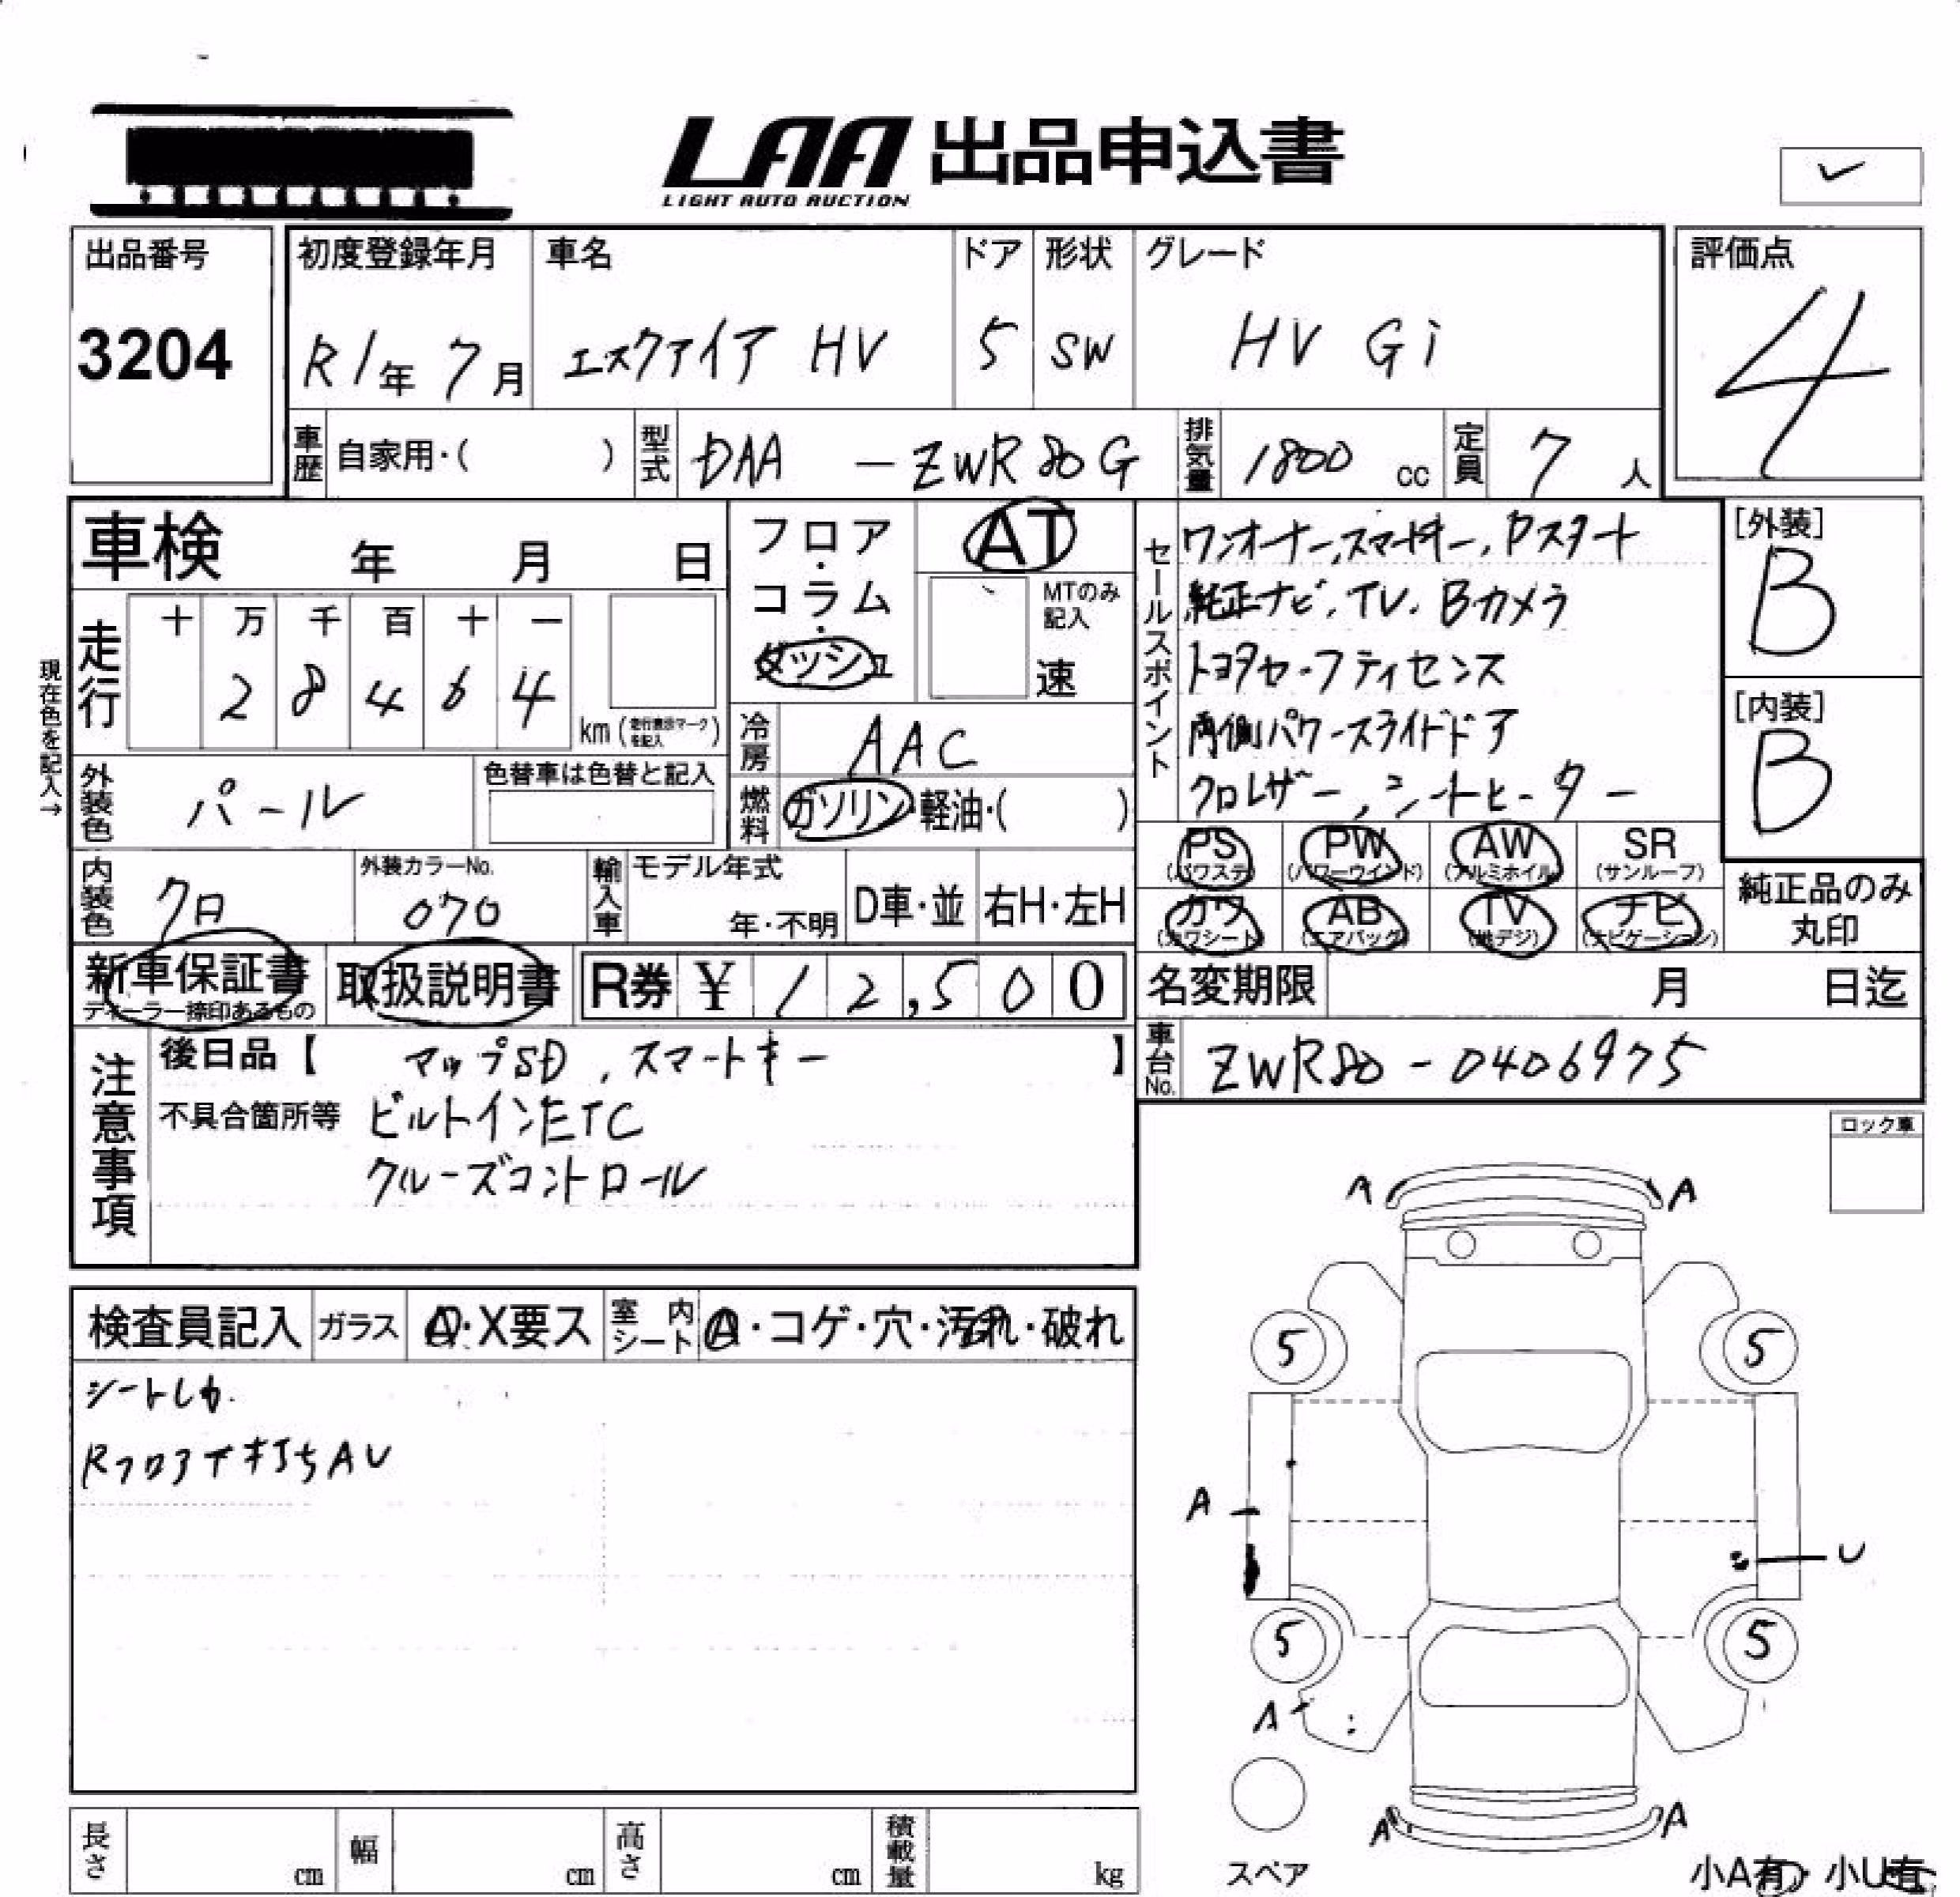 LAA 出品申込書
LIGHT AUTO AUCTION
出品番号
3204
初度登録年月
R1年 7月
車名
エスクァイア HV
ドア
5
形状
SW
グレード
HV Gi
評価点
4
車歴 自家用・( )
型式 DAA - ZWR80G
排気量 1800 cc
定員 7 人
車検 年 月 日
フロア・コラム・ダッシュ
AT
MTのみ記入
速
セールスポイント
ワンオーナー、スマートキー、Pスタート
純正ナビ、TV、Bカメラ
トヨタセーフティセンス
両側パワースライドドア
クロレザー、シートヒーター
[外装]
B
[内装]
B
走行
十 万 千 百 十 一
2 8 4 6 4
km (走行表示マークを記入)
現在色を記入→
冷房 AAC
外装色 パール
色替車は色替と記入
燃料 ガソリン・軽油・( )
内装色 クロ
外装カラーNo.
070
輸入車
モデル年式
年・不明
D車・並
右H・左H
PS (パワステ)
PW (パワーウインド)
AW (アルミホイル)
SR (サンルーフ)
カワ (カワシート)
AB (エアバック)
TV (地デジ)
ナビ (ナビゲーション)
純正品のみ丸印
新車保証書
ディーラー捺印あるもの
取扱説明書
R券 ¥ 1 2,5 0 0
名変期限 月 日迄
車台No. ZWR80-0406975
注意事項
後日品【 マップSD、スマートキー 】
不具合箇所等 ビルトインETC
クルーズコントロール
ロック車
検査員記入
ガラス A・X要ス
室内シート A・コゲ・穴・汚れ・破れ
シートしわ.
RフロアイキゴチAU
A A
5 5
A
U
5 5
A
A A
スペア
小A有・小U有
長さ cm
幅 cm
高さ cm
積載量 kg